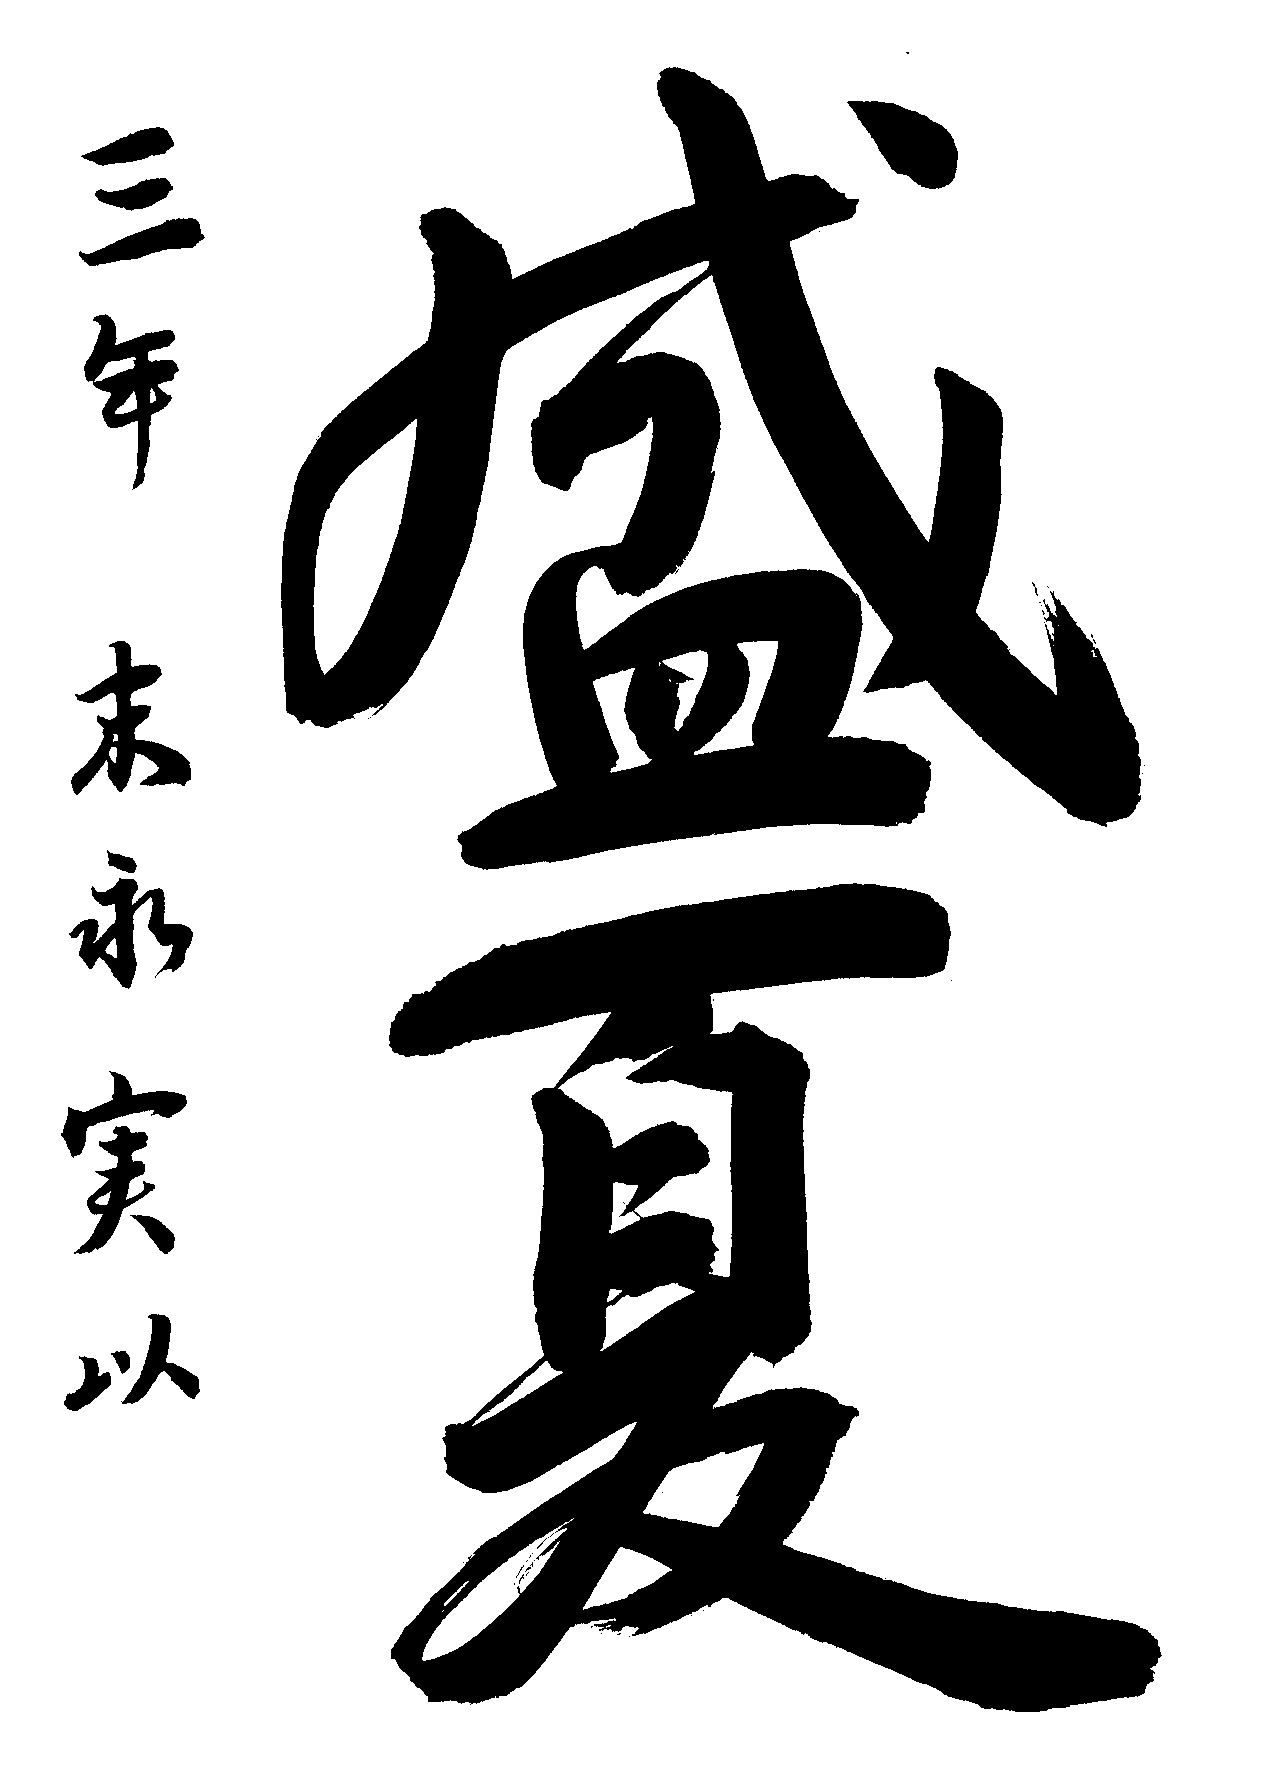 盛夏
三年 末永実以